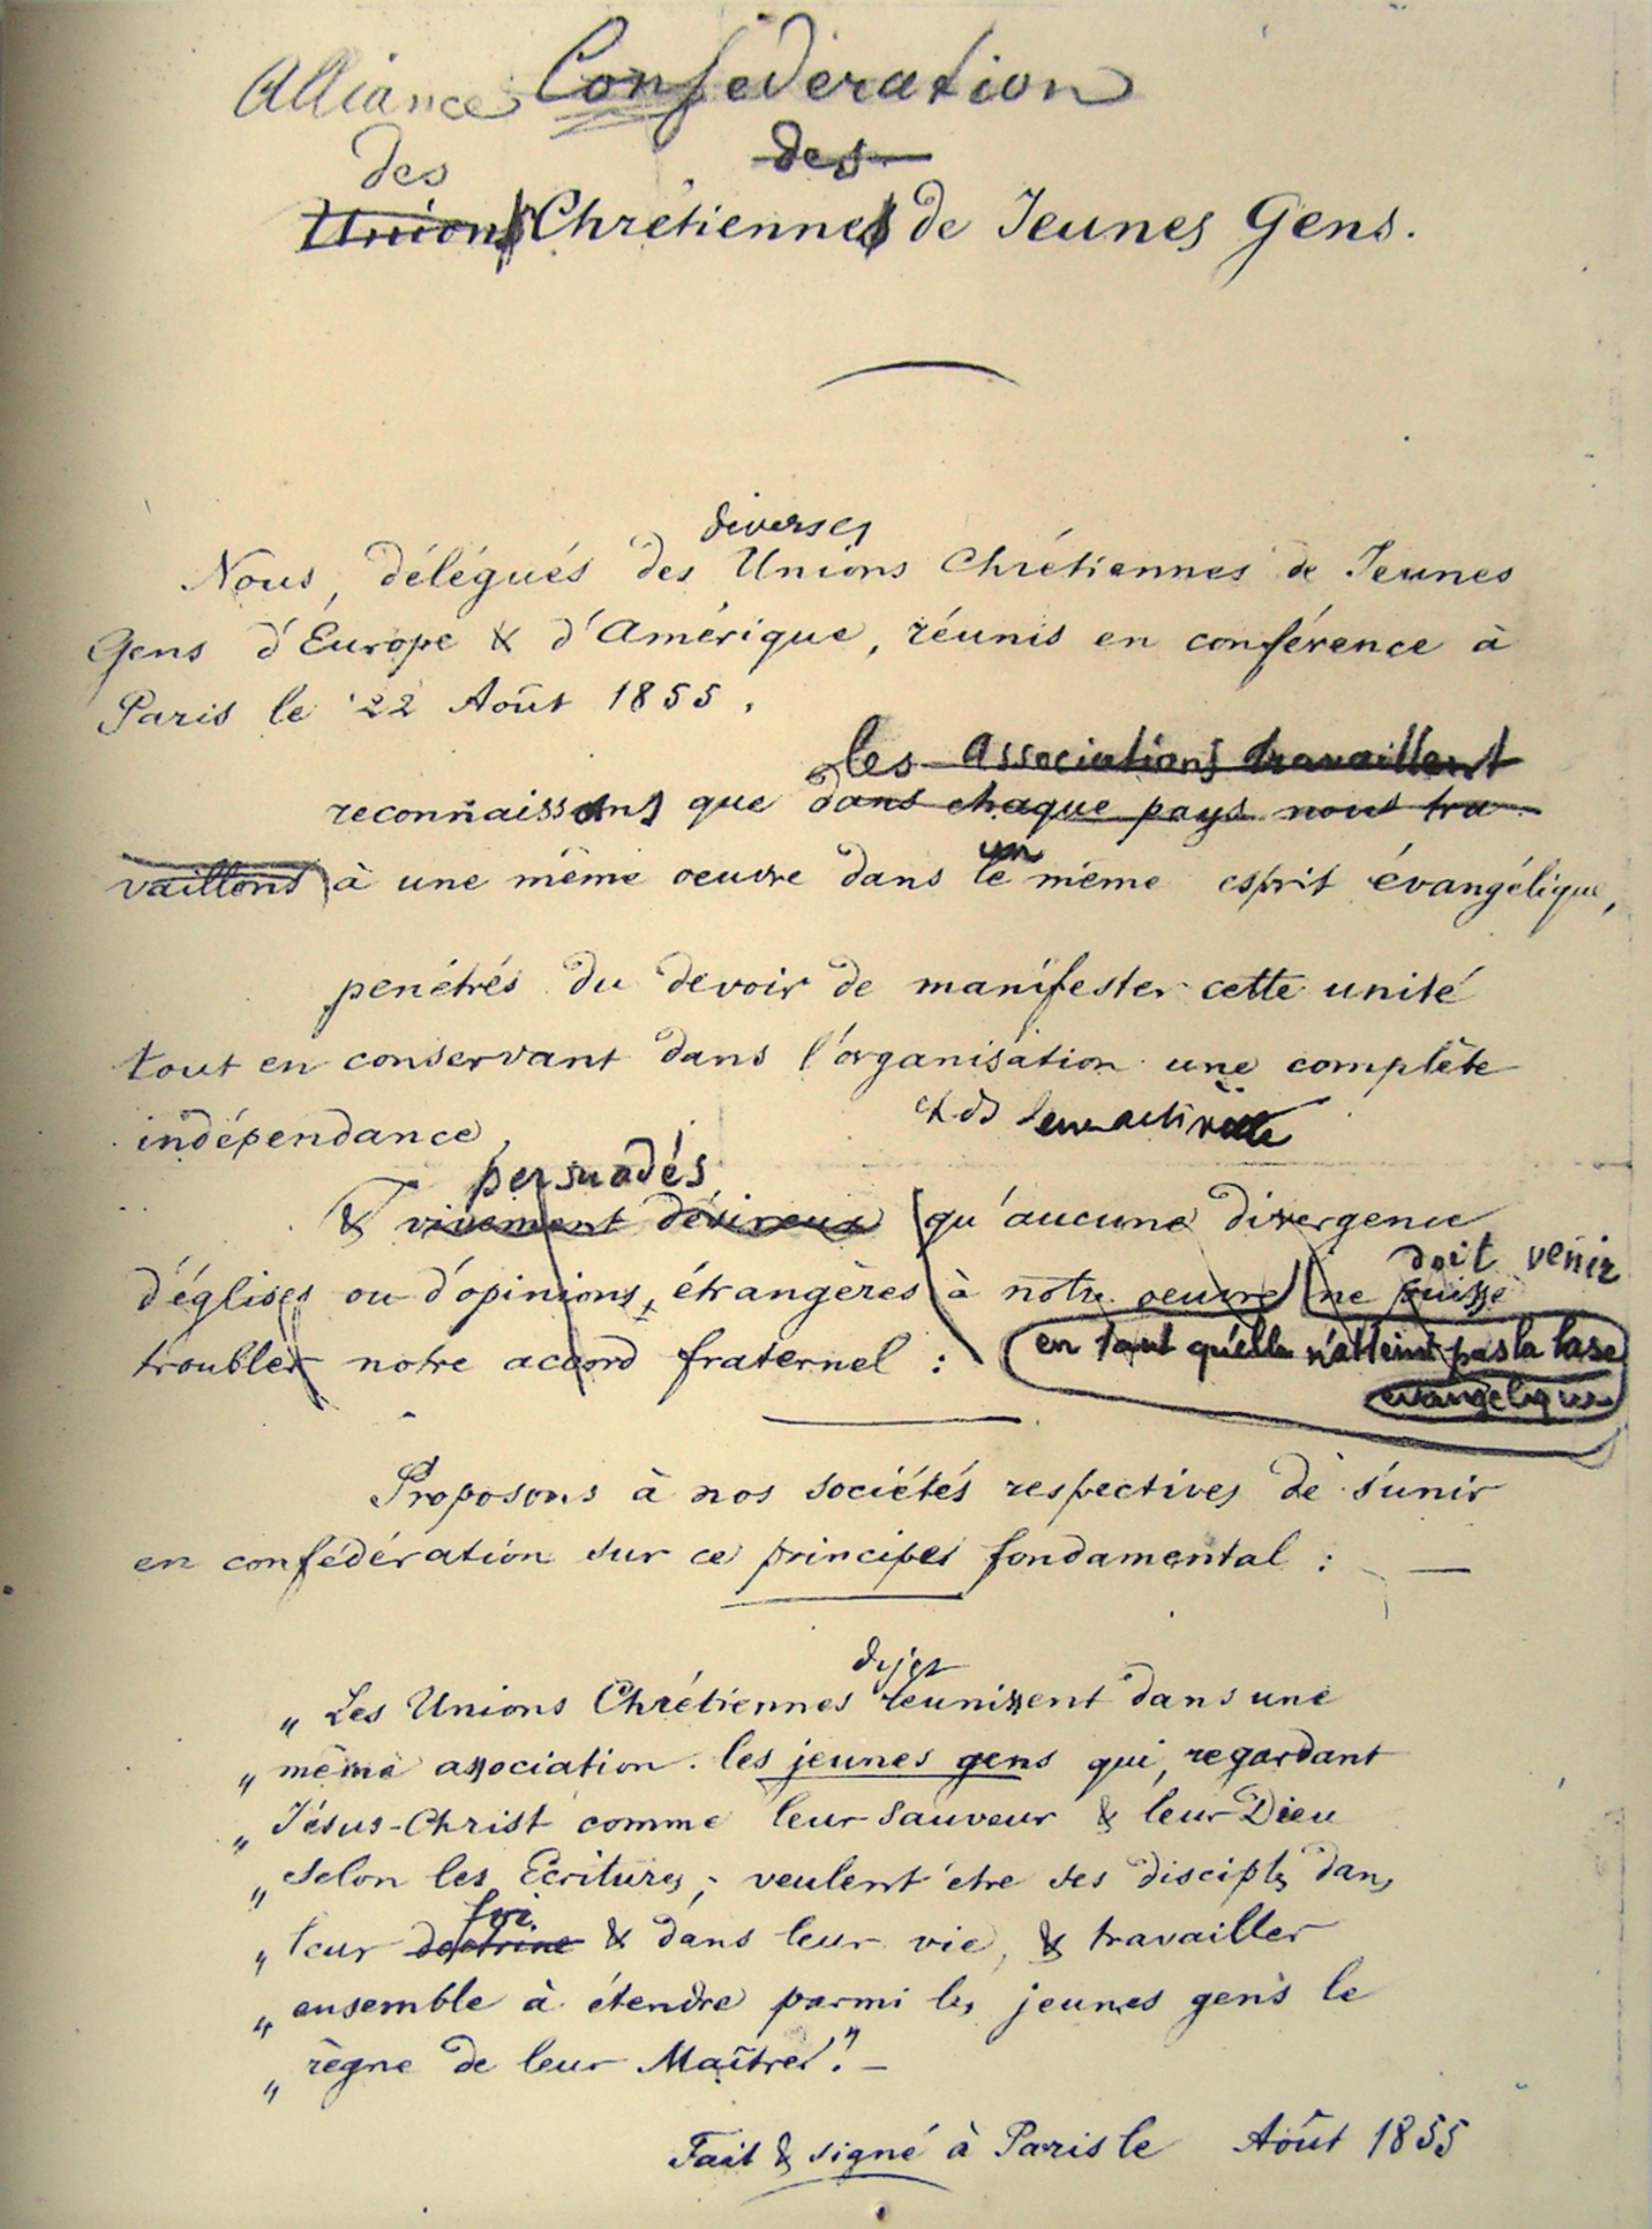 Alliance Confédération
des des
Unions Chrétiennes de Jeunes Gens.
diverses
Nous, délégués des Unions Chrétiennes de Jeunes
Gens d'Europe & d'Amérique, réunis en conférence à
Paris le 22 Août 1855,
les associations travaillent
reconnaissons que dans chaque pays nous tra-
vaillons à une même oeuvre dans le même esprit évangélique,
un
penétrés du devoir de manifester cette unité
tout en conservant dans l'organisation une complète
indépendance,
persuadés
& vivement désireux qu'aucune divergence
doit venir
d'églises ou d'opinions, étrangères à notre oeuvre ne puisse
troubler notre accord fraternel : en tant qu'elle n'atteint pas la base
évangélique
Proposons à nos sociétés respectives de s'unir
en confédération sur ce principes fondamental : —
„ Les Unions Chrétiennes réunissent dans une
„ même association les jeunes gens qui, regardant
„ Jésus-Christ comme leur Sauveur & leur Dieu
„ selon les Ecritures, veulent être ses disciples dans
foi
„ leur doctrine & dans leur vie, & travailler
„ ensemble à étendre parmi les jeunes gens le
„ règne de leur Maître." —
Fait & signé à Paris le Août 1855